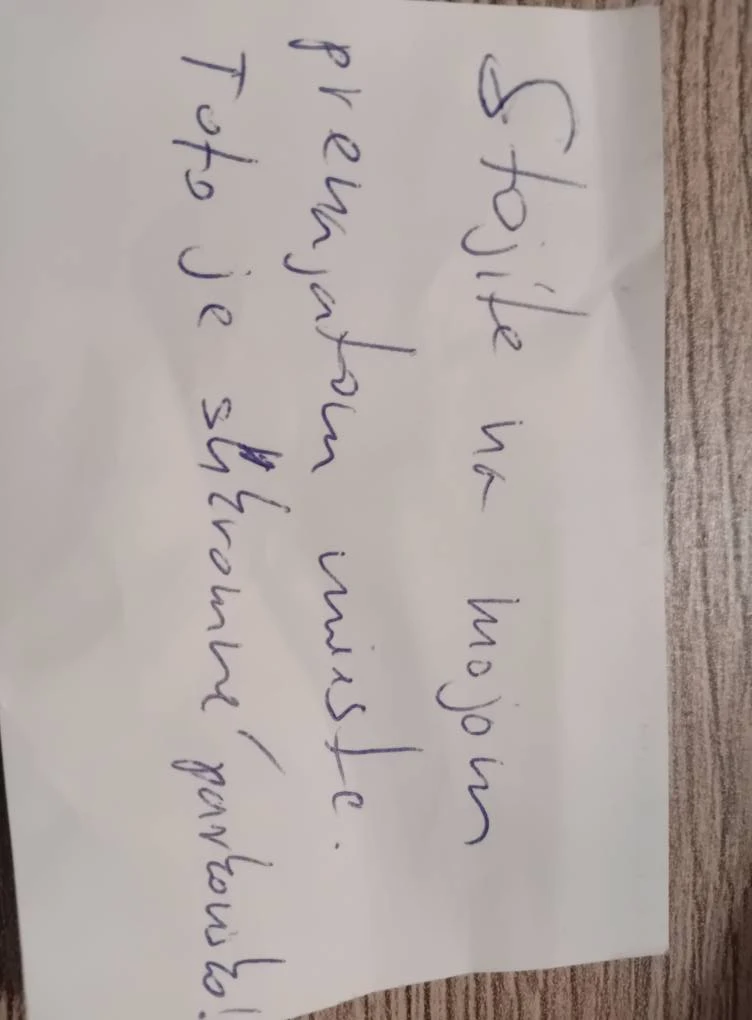 Stojíte na mojom
prenajatom mieste.
Toto je súkromné parkovisko!